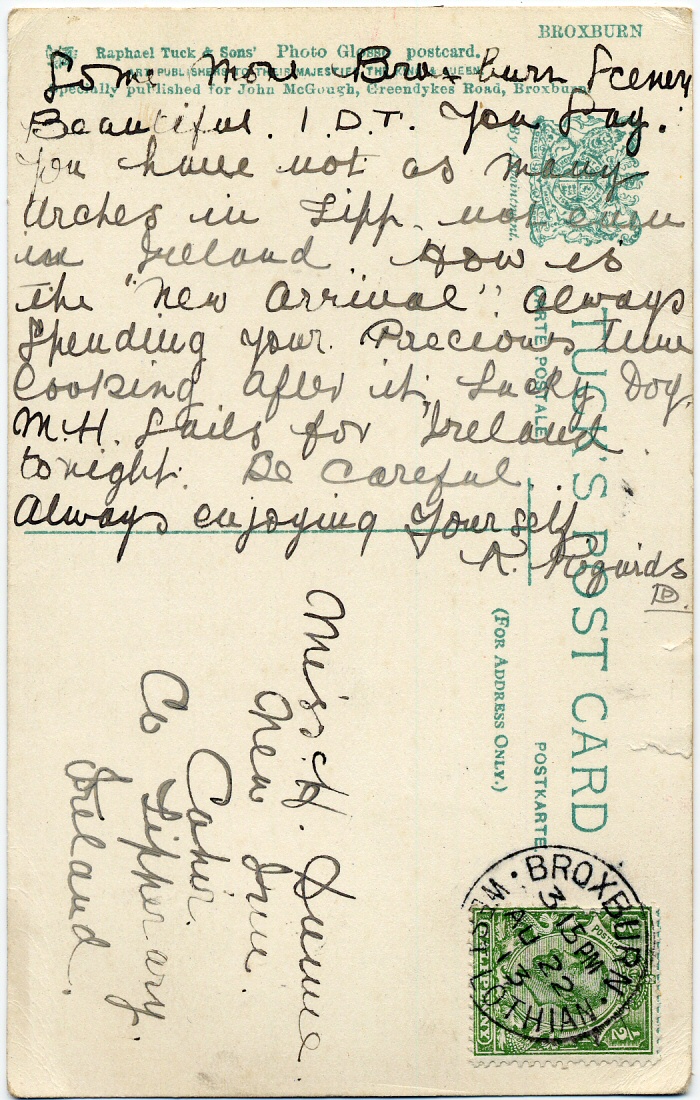 BROXBURN
Raphael Tuck & Sons' Photo Glosso postcard.
ART PUBLISHERS TO THEIR MAJESTIES THE KING & QUEEN
Specially published for John McGough, Greendykes Road, Broxburn
Some More Broxburn Scenery
Beautiful. I.D.T. You Say.
You have not as many
Arches in Tipp. not even
in Ireland. How is
the "New Arrival". Always
Spending your Precious Time
Looking after it. Lucky Dog.
M.H. Sails for Ireland
tonight. Be careful.
Always enjoying Yourself.
R. Regards
By Appointment.
TUCK'S POST CARD
CARTE POSTALE
POSTKARTE
(FOR ADDRESS ONLY.)
Miss H.
New Inn.
Cahir.
Co Tipperary.
Ireland.
BROXBURN
3 15 PM
AU 22
13
LOTHIAN
POSTAGE
HALFPENNY
1/2